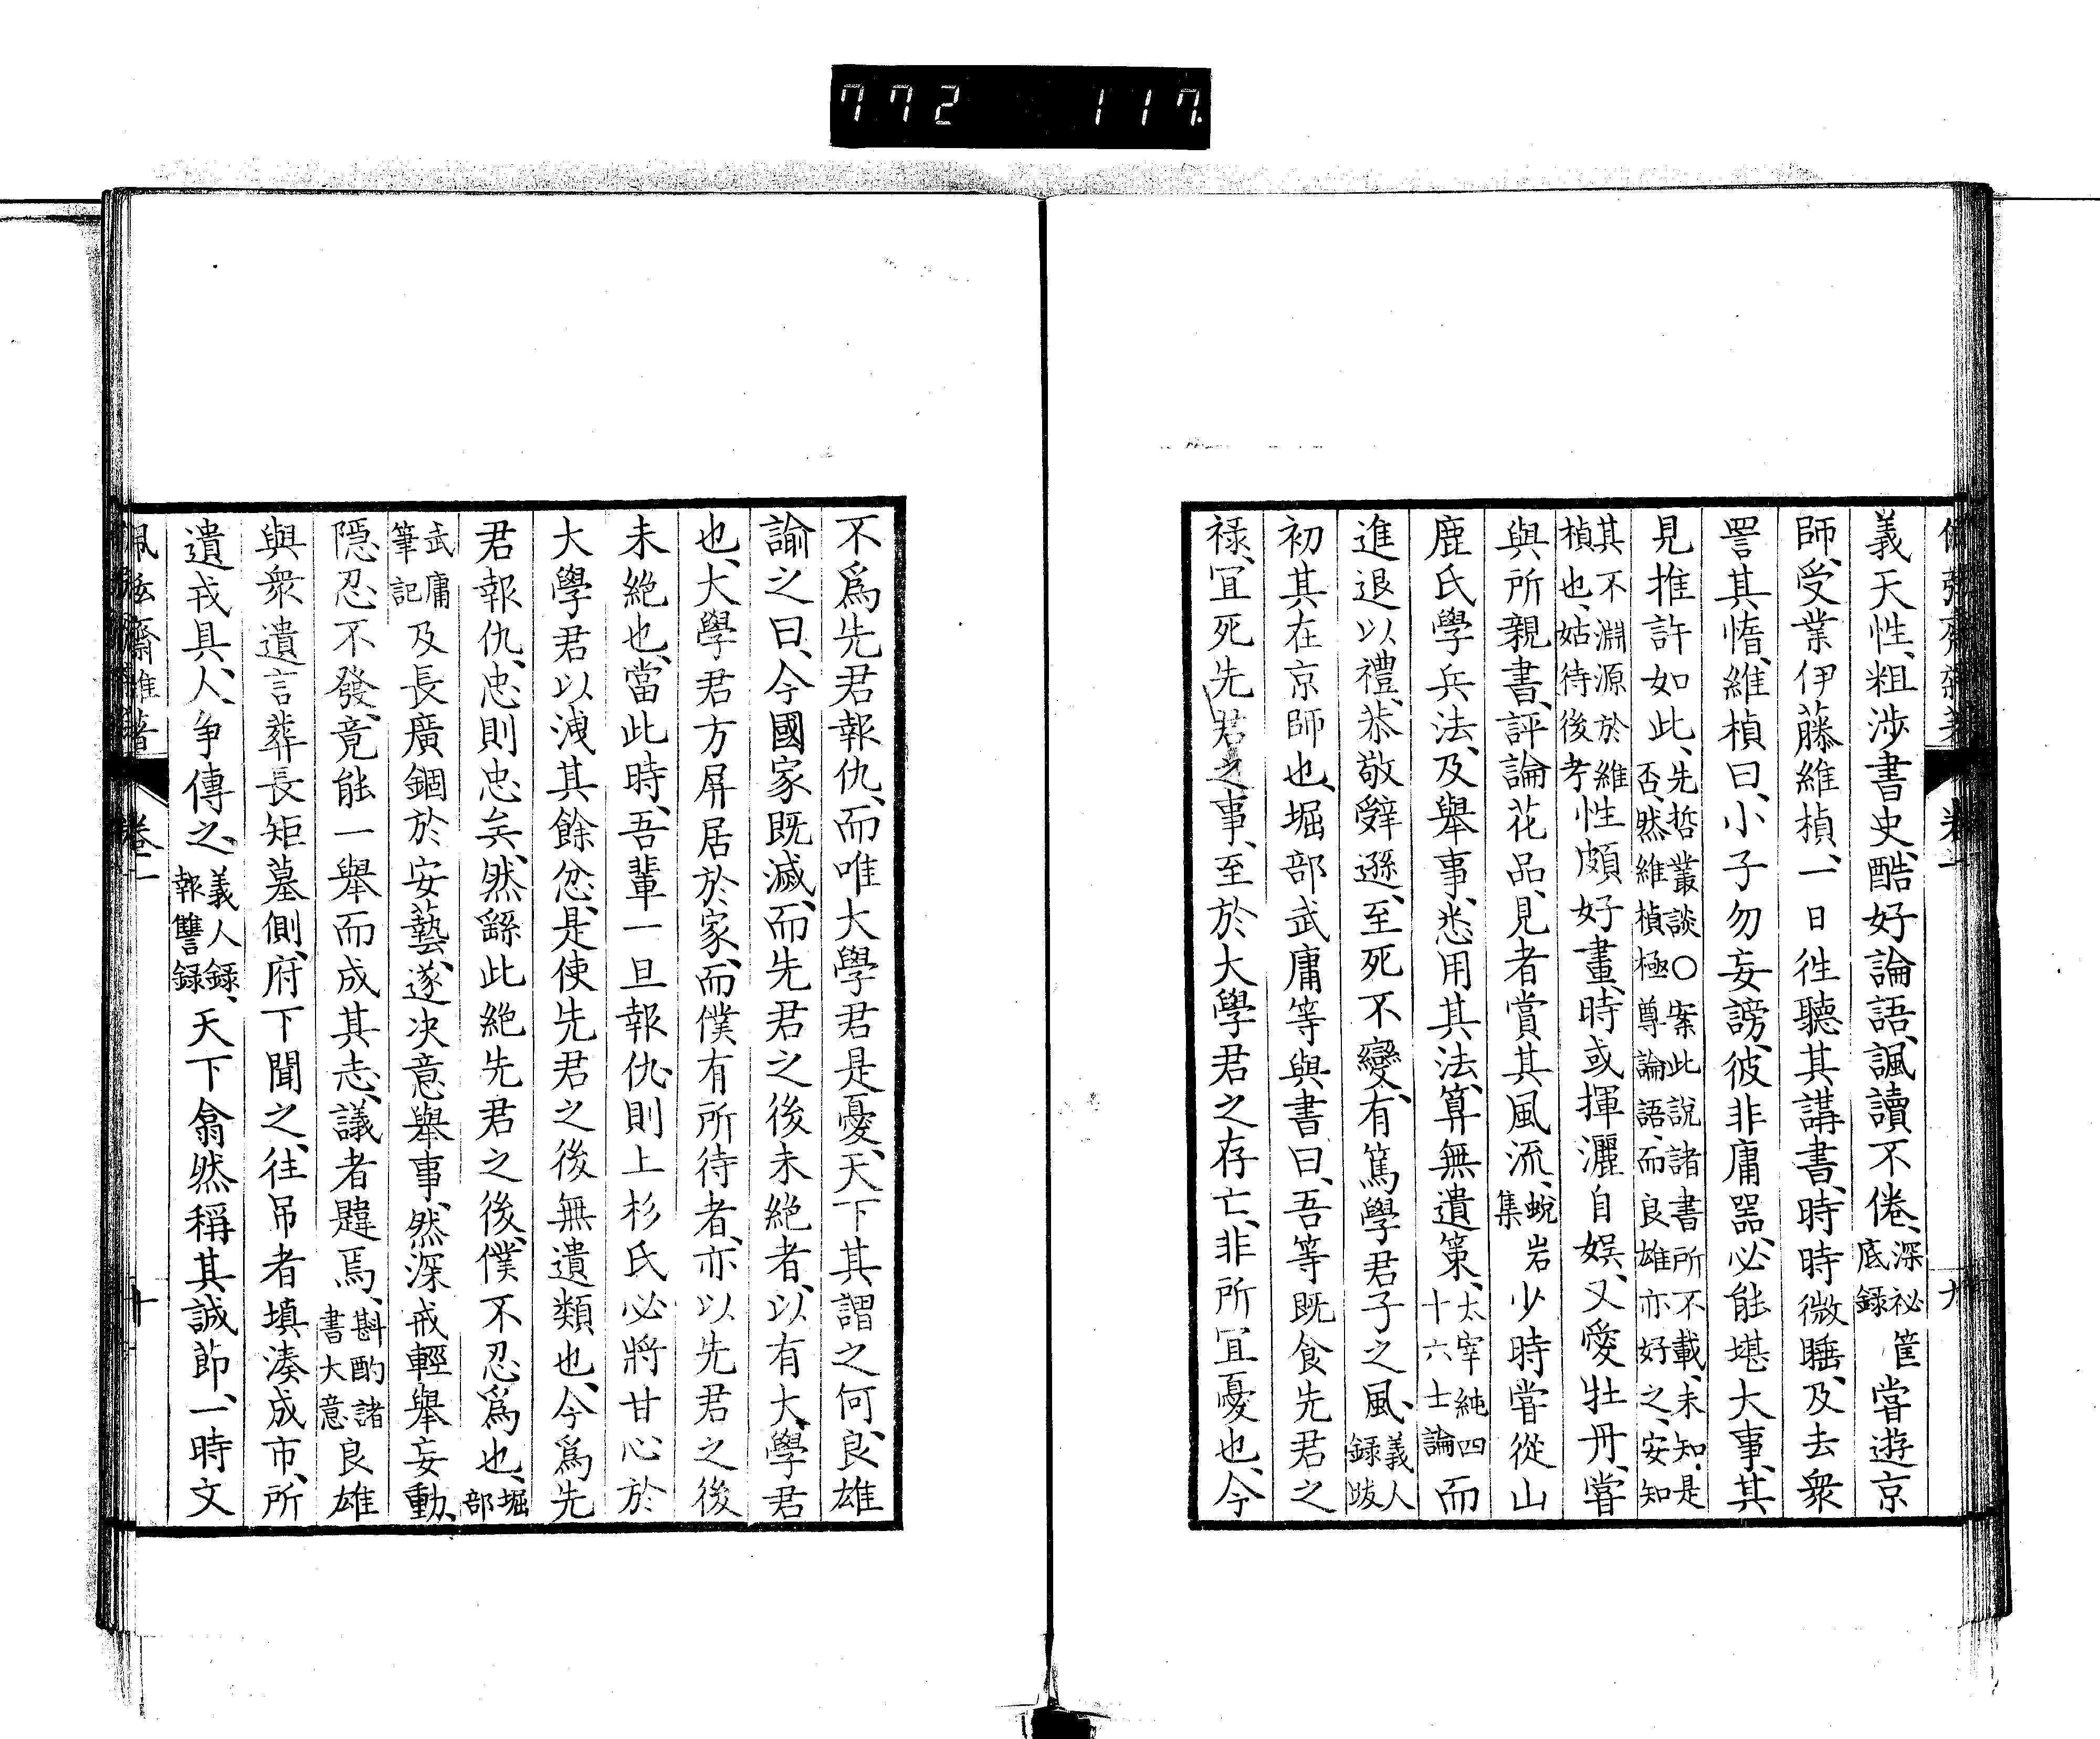 772 117
佩弦齋雜著 卷二 九
義天性、粗渉書史、酷好論語、諷讀不倦、深祕底録 筐嘗遊京
師、受業伊藤維楨、一日徃聽其講書、時時微睡、及去衆
詈其惰、維楨曰、小子勿妄謗、彼非庸器、必能堪大事、其
見推許如此、先哲叢談〇案此說諸書所不載、未知是否、然維楨極尊論語、而良雄亦好之、安知
其不淵源於維楨也、姑待後考 性頗好畫、時或揮灑自娯、又愛牡丹、嘗
與所親書、評論花品、見者賞其風流、蛻岩集 少時嘗從山
鹿氏學兵法、及舉事、悉用其法、算無遺策、太宰純四十六士論 而
進退以禮、恭敬辭遜、至死不變、有篤學君子之風、義人録跋
初其在京師也、堀部武庸等與書曰、吾等既食先君之
禄、宜死先君之事、至於大學君之存亡、非所宜憂也、今
不爲先君報仇、而唯大學君是憂、天下其謂之何、良雄
諭之曰、今國家既滅、而先君之後未絶者、以有大學君
也、大學君方屏居於家、而僕有所待者、亦以先君之後
未絶也、當此時、吾輩一旦報仇、則上杉氏必將甘心於
大學君以洩其餘忿、是使先君之後無遺類也、今爲先
君報仇、忠則忠矣、然繇此絶先君之後、僕不忍爲也、堀部
武庸筆記 及長廣錮於安藝、遂决意舉事、然深戒輕舉妄動、
隱忍不發、竟能一舉而成其志、議者韙焉、斟酌諸書大意 良雄
與衆遺言葬長矩墓側、府下聞之、往吊者填湊成市、所
遺戎具、人争傳之、義人録、報讐録、天下翕然稱其誠節、一時文
佩弦齋雜著 卷二 十